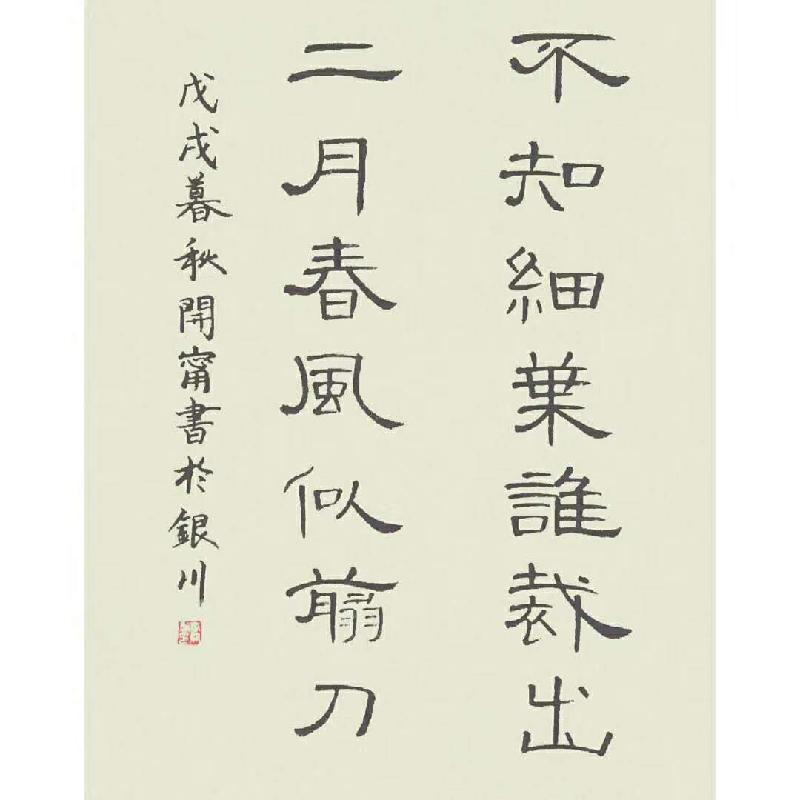 不知細葉誰裁出
二月春風似翦刀
戊戌暮秋開甯書於銀川